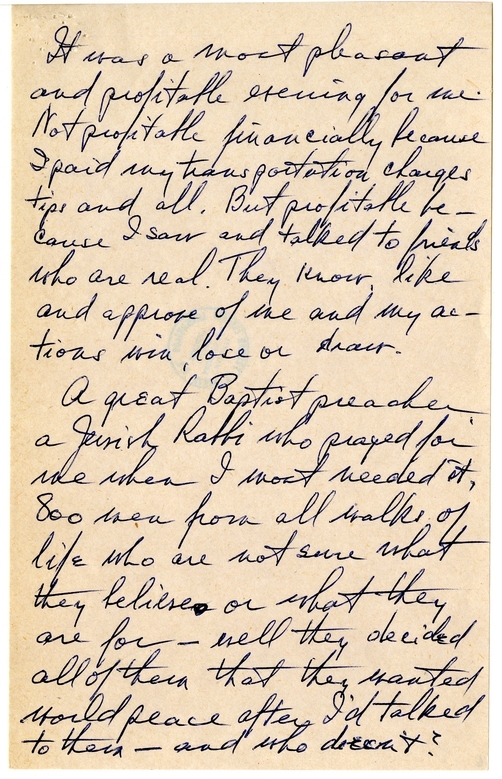 It was a most pleasant
and profitable evening for me.
Not profitable financially because
I paid my transportation charges
tips and all. But profitable be-
cause I saw and talked to friends
who are real. They know, like
and approve of me and my ac-
tions win, lose or draw.
A great Baptist preacher
a Jewish Rabbi who prayed for
me when I most needed it,
800 men from all walks of
life who are not sure what
they believe or what they
are for – well they decided
all of them that they wanted
world peace after I'd talked
to them – and who doesn't?